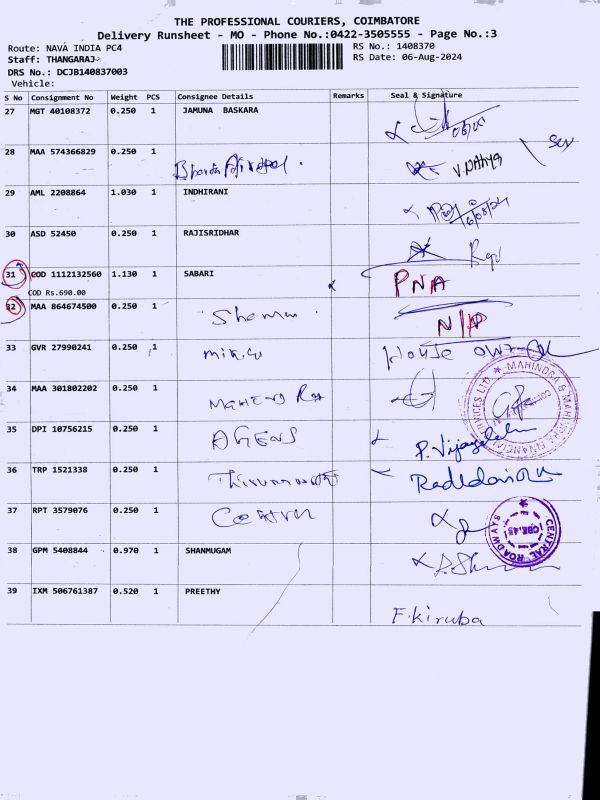 THE PROFESSIONAL COURIERS, COIMBATORE
Delivery Runsheet - MO - Phone No.:0422-3505555 - Page No.:3
Route: NAVA INDIA PC4
RS No.: 1408370
Staff: THANGARAJ
RS Date: 06-Aug-2024
DRS No.: DCJB140837003
Vehicle:
S No Consignment No Weight PCS Consignee Details Remarks Seal & Signature
27 MGT 40108372 0.250 1 JAMUNA BASKARA
28 MAA 574366829 0.250 1
29 AML 2208864 1.030 1 INDHIRANI
30 ASD 52450 0.250 1 RAJISRIDHAR
31 COD 1112132560 1.130 1 SABARI PNA
COD Rs.690.00
32 MAA 864674500 0.250 1 N/A
33 GVR 27990241 0.250 1 House
34 MAA 301802202 0.250 1
MAHINDRA & MAHINDRA FINANCIAL SERVICES LTD.
35 DPI 10756215 0.250 1
36 TRP 1521338 0.250 1
37 RPT 3579076 0.250 1
CENTRAL ROADWAYS
CBE.45
38 GPM 5408844 0.970 1 SHANMUGAM
39 IXM 506761387 0.520 1 PREETHY F.kiruba